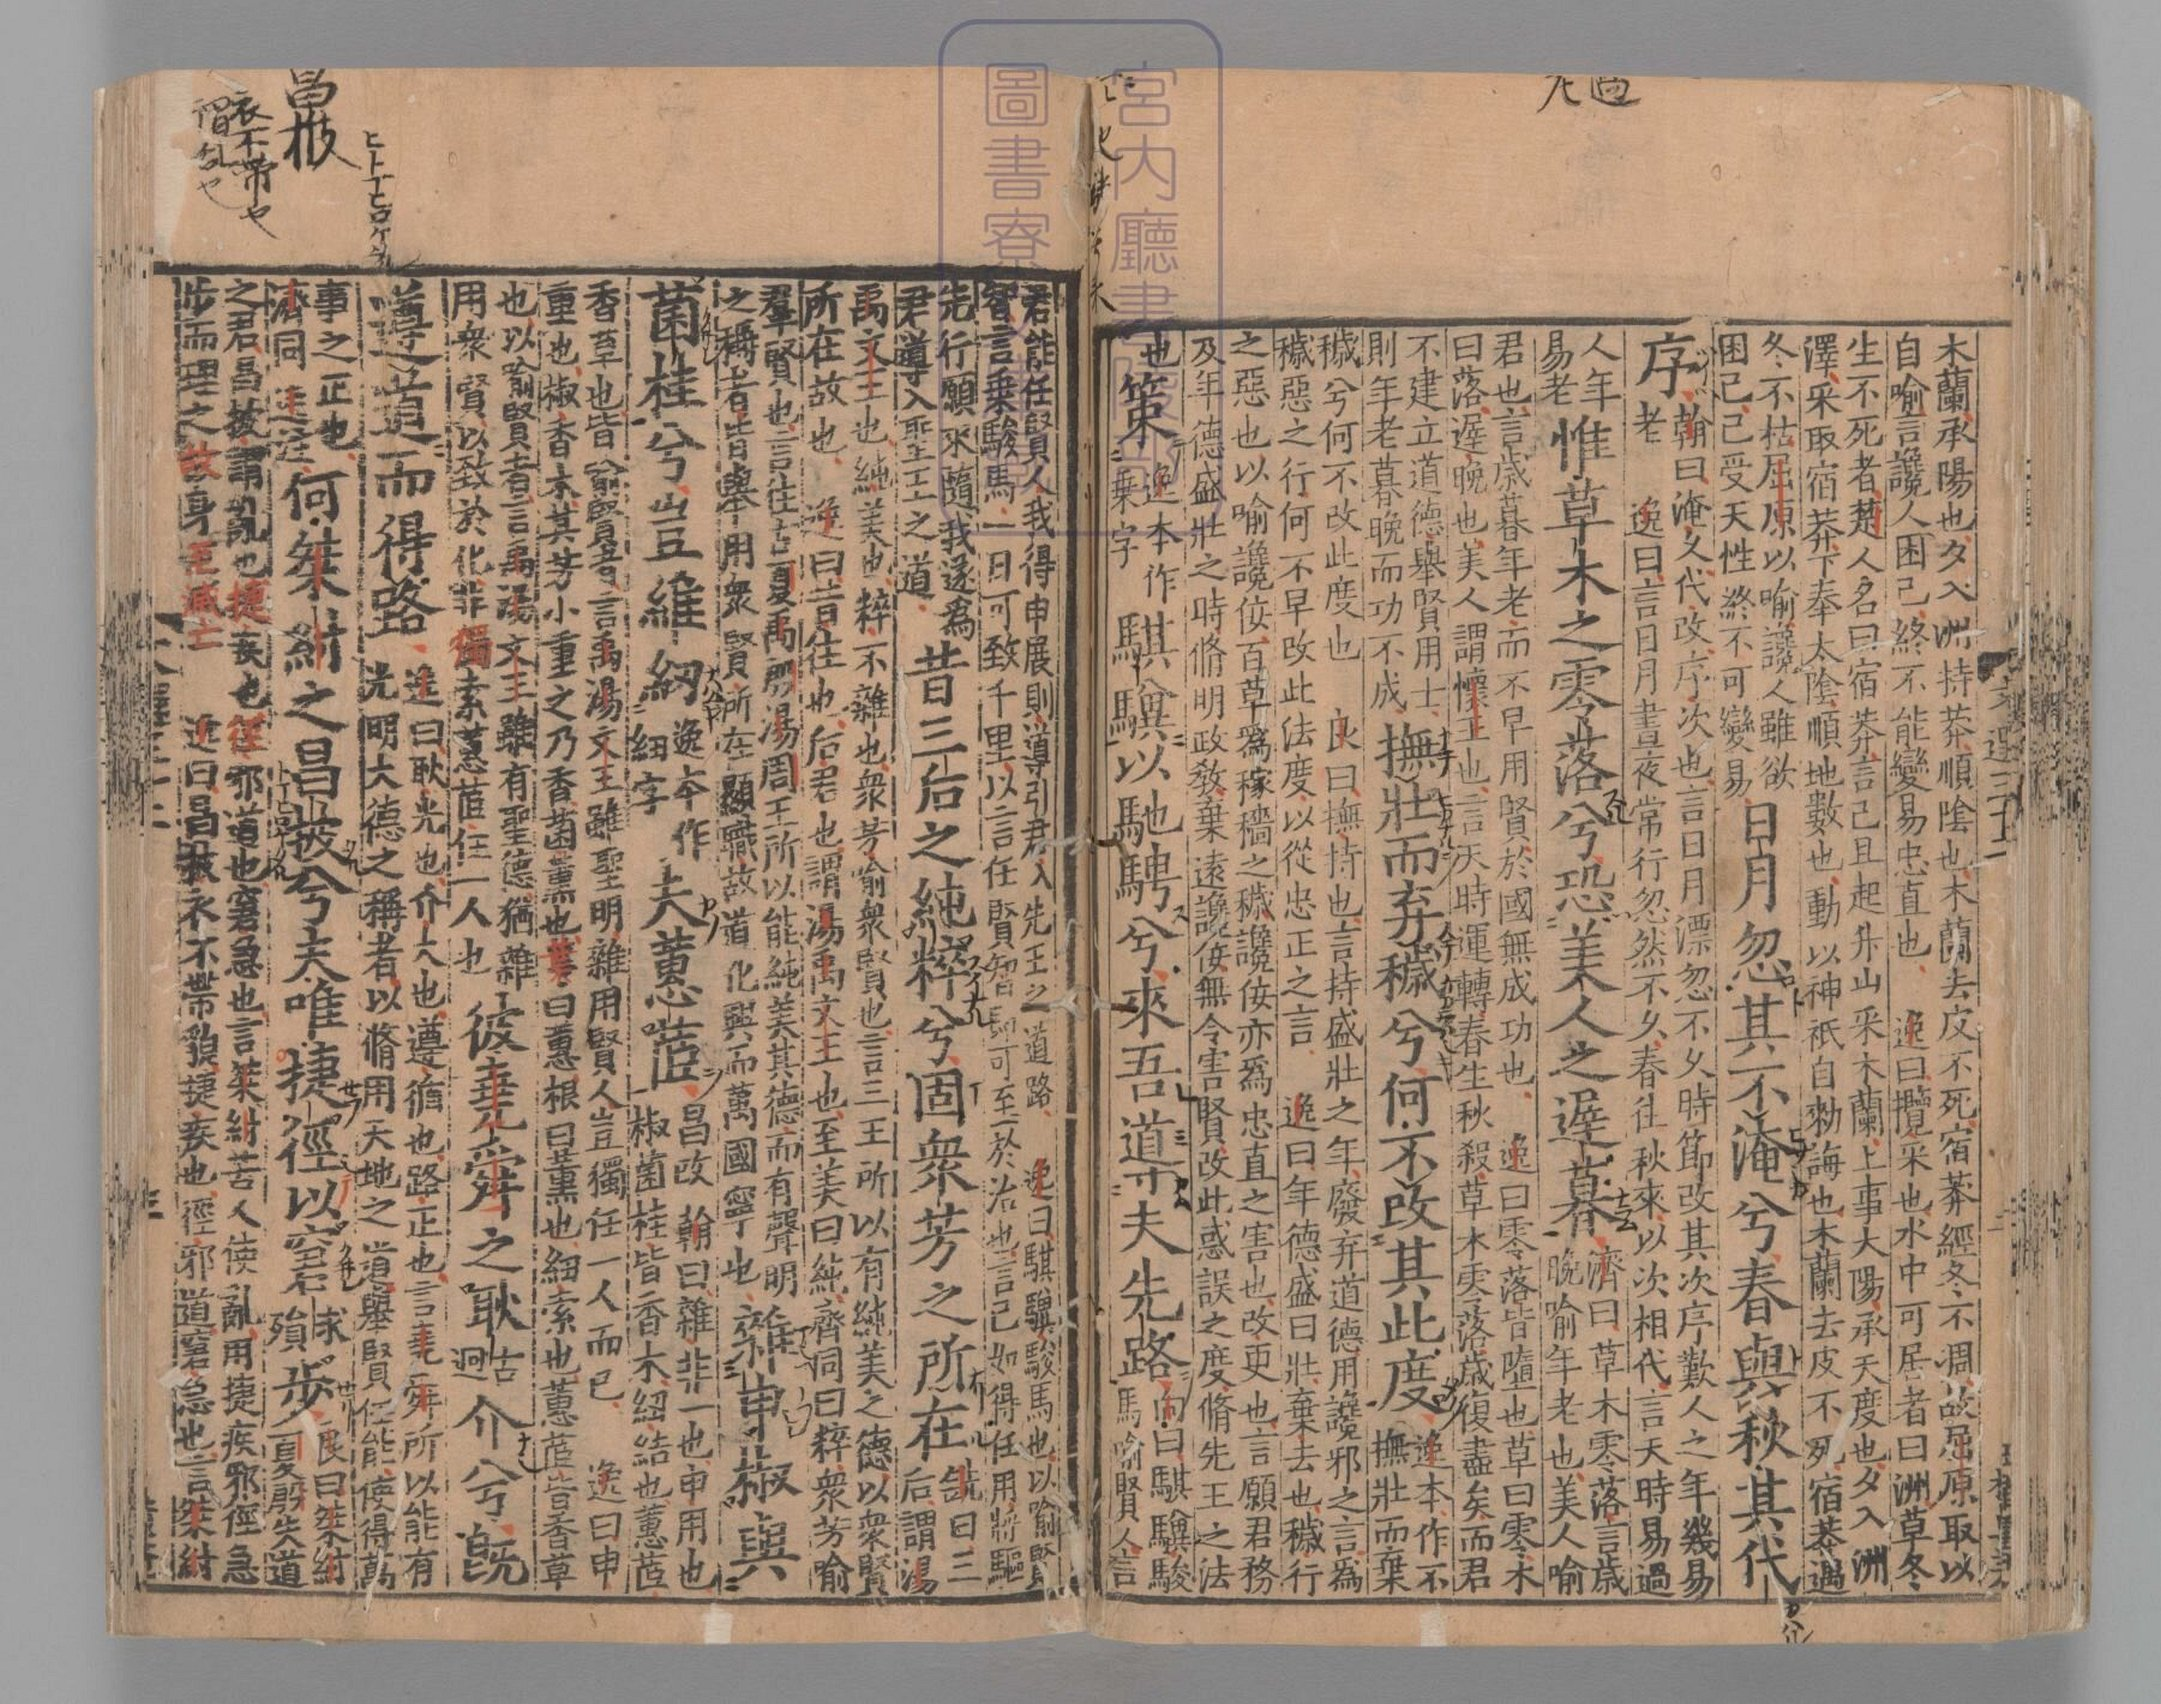 木蘭承陽也夕入洲持莽順陰也木蘭去皮不死宿莽經冬不凋故屈原取以
自喻言讒人困己終不能變易忠直也 逸曰攬采也水中可居者曰洲草冬
生不死者楚人名曰宿莽言己旦起升山采木蘭上事太陽承天度也夕入洲
澤采取宿莽下奉太陰順地數也動以神祇自勑誨也木蘭去皮不死宿莽遇
冬不枯屈原以喻讒人雖欲
困己己受天性終不可變易
日月忽其不淹兮春與秋其代
序
翰曰淹久代改序次也言日月漂忽不久時節改其次序歎人之年幾易
老 逸曰言日月晝夜常行忽然不久春往秋來以次相代言天時易過
人年
易老
惟草木之零落兮恐美人之遲暮
濟曰草木零落言歳
晚喻年老也美人喻
君也言歳暮年老而不早用賢於國無成功也 逸曰零落皆墮也草曰零木
曰落遲晚也美人謂懷王也言天時運轉春生秋殺草木零落歳復盡矣而君
不建立道德舉賢用士
則年老暮晚而功不成
撫壯而弃穢兮何不改其此度
逸本作不
撫壯而棄
穢兮何不改此度也 良曰撫持也言持盛壯之年廢弃道德用讒邪之言為
穢惡之行何不早改此法度以從忠正之言 逸曰年德盛曰壯棄去也穢行
之惡也以喻讒佞百草為稼穡之穢讒佞亦為忠直之害也改更也言願君務
及年德盛壯之時脩明政教棄遠讒佞無令害賢改此惑誤之度脩先王之法
也
策
逸本作
乗字
騏驥以馳騁兮來吾導夫先路
向曰騏驥駿
馬喻賢人言
君能任賢人我得申展則導引君入先王之道路 逸曰騏驥駿馬也以喻賢
智言乗駿馬一日可致千里以言任賢智即可至於治也言己如得任用將驅
先行願來隨我遂為
君導入聖王之道
昔三后之純粹兮固衆芳之所在
銑曰三
后謂湯
禹文王也純美也粹不雜也衆芳喻衆賢也言三王所以有純美之德以衆賢
所在故也 逸曰昔往也后君也謂湯禹文王也至美曰純齊同曰粹衆芳喻
羣賢也言往古夏禹殷湯周王所以能純美其德而有聲明
之稱者皆舉用衆賢所在顯職故道化興而萬國寧也
雜申椒與
菌桂兮豈維紉
逸本作
細字
夫蕙茝
昌改
翰曰雜非一也申用也
椒菌桂皆香木紐結也蕙茝
香草也皆喻賢者言禹湯文王雖聖明雜用賢人豈獨任一人而已 逸曰申
重也椒香木其芳小重之乃香菌薰也葉曰蕙根曰薰也細索也蕙茝皆香草
也以喻賢者言禹湯文王雖有聖德猶雜
用衆賢以致於化非獨索蕙茝任一人也
彼堯舜之耿
古
迥
介兮旣
遵道而得路
逸曰耿光也介大也遵循也路正也言堯舜所以能有
光明大德之稱者以脩用天地之道舉賢任能使得萬
事之正也
濟同逸注
何桀紂之昌披兮夫唯捷徑以窘
求
殞
步
良曰桀紂
夏殷失道
之君昌披謂亂也捷疾也徑邪道也窘急也言桀紂苦人使亂用捷疾邪徑急
步而理之故身至滅亡 逸曰昌披衣不帶貌捷疾也徑邪道窘急也言桀紂
昌披
衣不帶也
宮内廳書陵部
圖書寮